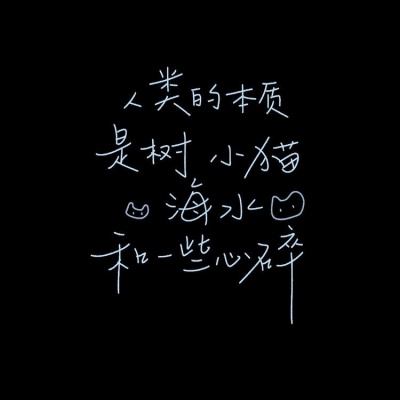 人类的本质
是树 小猫
海水
和一些心碎